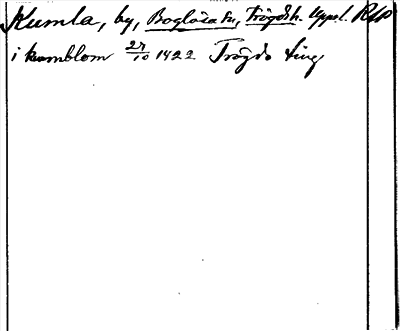 Kumla, by, Boglösa sn, Trögds h. Uppl. RAP
i kumblom 27/10 1422 Trögds ting